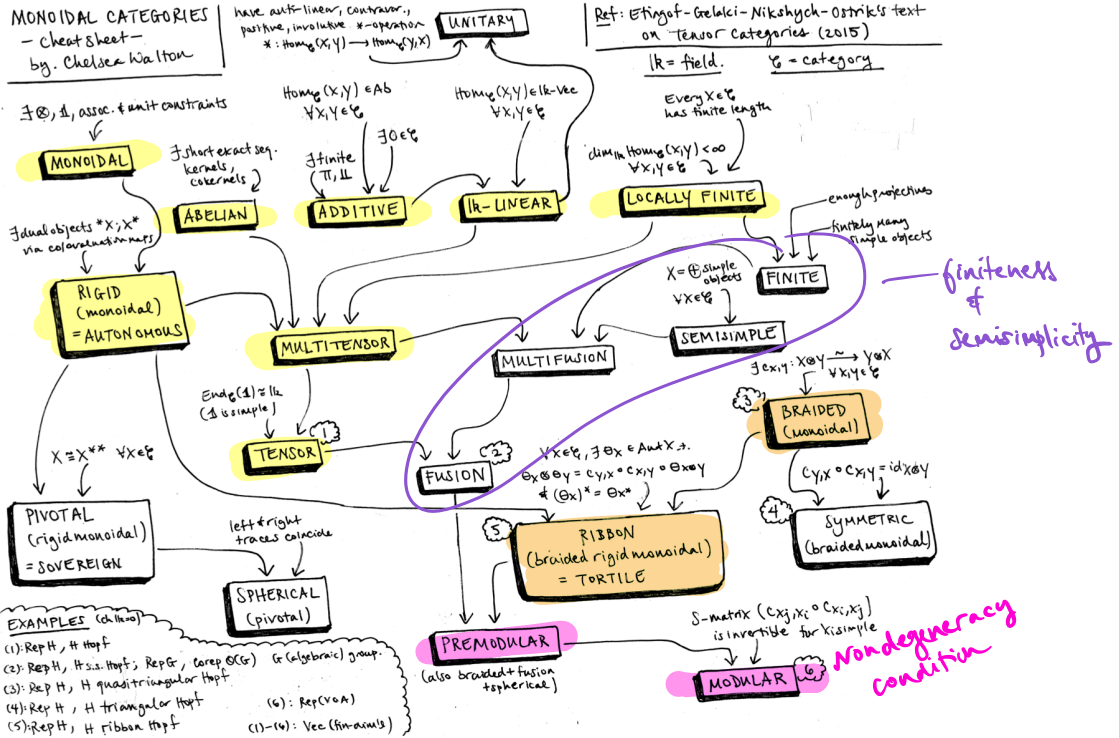 MONOIDAL CATEGORIES
- Cheat Sheet -
by. Chelsea Walton
have anti-linear, contravar.,
positive, involutive *-operation
* : Hom𝒞(X,Y) → Hom𝒞(Y,X)
UNITARY
Ref: Etingof-Gelaki-Nikshych-Ostrik's text
on Tensor Categories (2015)
𝕜 = field.
𝒞 = category
∃ ⊗, 𝟙, assoc. & unit constraints
MONOIDAL
∃ short exact seq.
kernels,
cokernels
ABELIAN
Hom𝒞(X,Y) ∈ Ab
∀X,Y∈𝒞
∃ 0 ∈ 𝒞
∃ finite
Π, ⨿
ADDITIVE
Hom𝒞(X,Y) ∈ 𝕜-Vec
∀X,Y∈𝒞
𝕜-LINEAR
Every X∈𝒞
has finite length
dim𝕜 Hom𝒞(X,Y) < ∞
∀X,Y∈𝒞
LOCALLY FINITE
enough projectives
finitely many
simple objects
FINITE
finiteness
&
semisimplicity
∃ dual objects *X, X*
via co/evaluation maps
RIGID
(monoidal)
= AUTONOMOUS
X = ⊕ simple
objects
∀X∈𝒞
SEMISIMPLE
MULTITENSOR
MULTIFUSION
End𝒞(𝟙) ≅ 𝕜
(𝟙 is simple)
TENSOR
1
FUSION
2
∃ cX,Y : X⊗Y ~→ Y⊗X
∀X,Y∈𝒞
3
BRAIDED
(monoidal)
X ≅ X** ∀X∈𝒞
PIVOTAL
(rigid monoidal)
= SOVEREIGN
left & right
traces coincide
SPHERICAL
(pivotal)
∀X∈𝒞, ∃ θX ∈ Aut X ∋.
θX⊗θY = cY,X ∘ cX,Y ∘ θX⊗Y
& (θX)* = θX*
5
RIBBON
(braided rigid monoidal)
= TORTILE
cY,X ∘ cX,Y = idX⊗Y
4
SYMMETRIC
(braided monoidal)
PREMODULAR
(also braided + fusion
+ spherical)
S-matrix (cXj,Xi ∘ cXi,Xj)
is invertible for Xi simple
MODULAR
6
Nondegeneracy
condition
EXAMPLES
(1): Rep H, H Hopf
(2): Rep H, H s.s. Hopf; Rep G, Corep O(G) G (algebraic) group.
(3): Rep H, H quasitriangular Hopf
(4): Rep H, H triangular Hopf
(5): Rep H, H ribbon Hopf
(6): Rep(VOA)
(1)-(6): Vec (fin-dim'l)